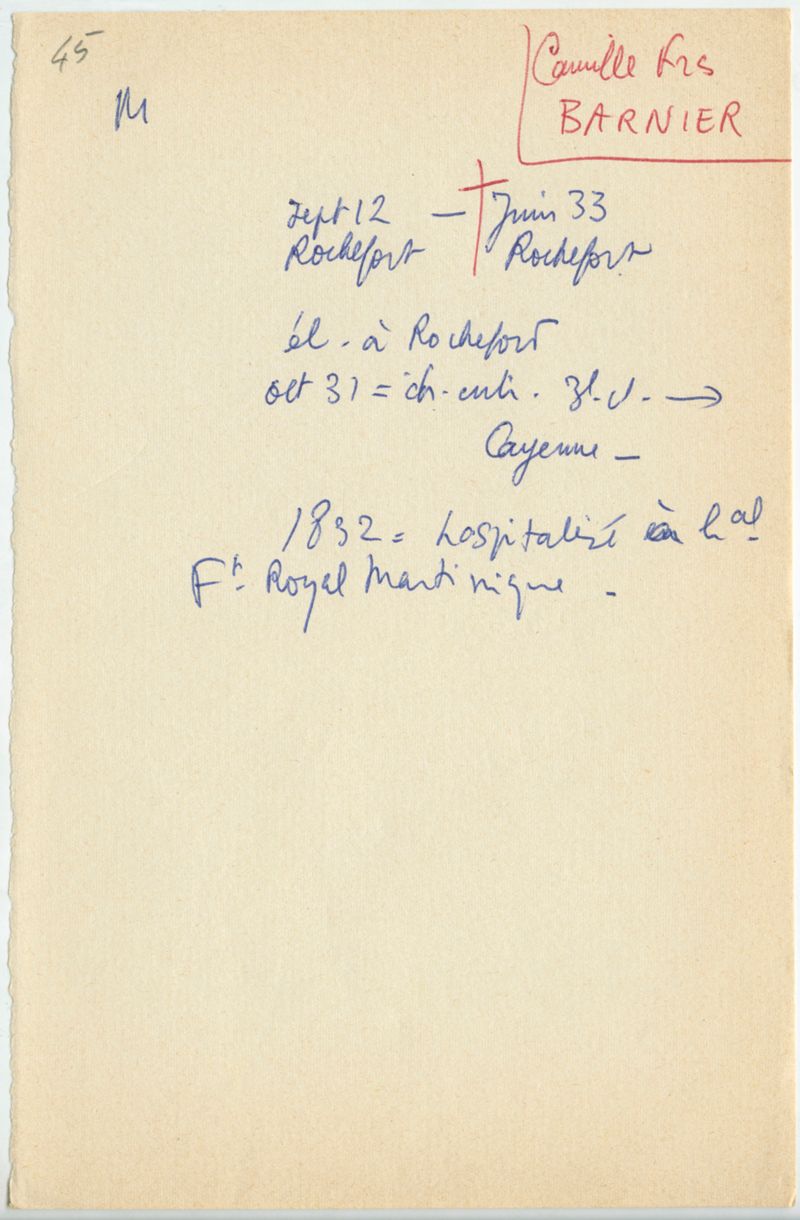 45
M
Camille Frs
BARNIER
sept 12 — † Juin 33
Rochefort Rochefort
él. à Rochefort
oct 31 = ch. enti. 3l. cl. →
Cayenne —
1832 = hospitalisé à h^al
F^t. Royal Martinique .